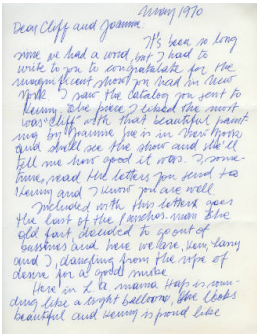 May 1970
Dear Cliff and Joanna.
It's been so long
since we had a word, but I had to
write to you to congratulate for the
magnificent show you had in New
York. I saw the catalog you sent to
Kenny. The piece I liked the most
was "Cliff" with that beautiful paint
ing by Joanna. Joe is in New York
and shall see the show and she'll
tell me how good it was. I, some-
time, read the letters you send to
Kenny and I know you are well.
Included with this letters goes
the last of the         man. The
old fart, decided to go out of
bussines and here we are, Ken,
and I, dangling from the rope of
desire for a good smoke
Here in L.A. mama Hap is roun-
ding like a bright balloon, she looks
beautiful and Kenny is proud like